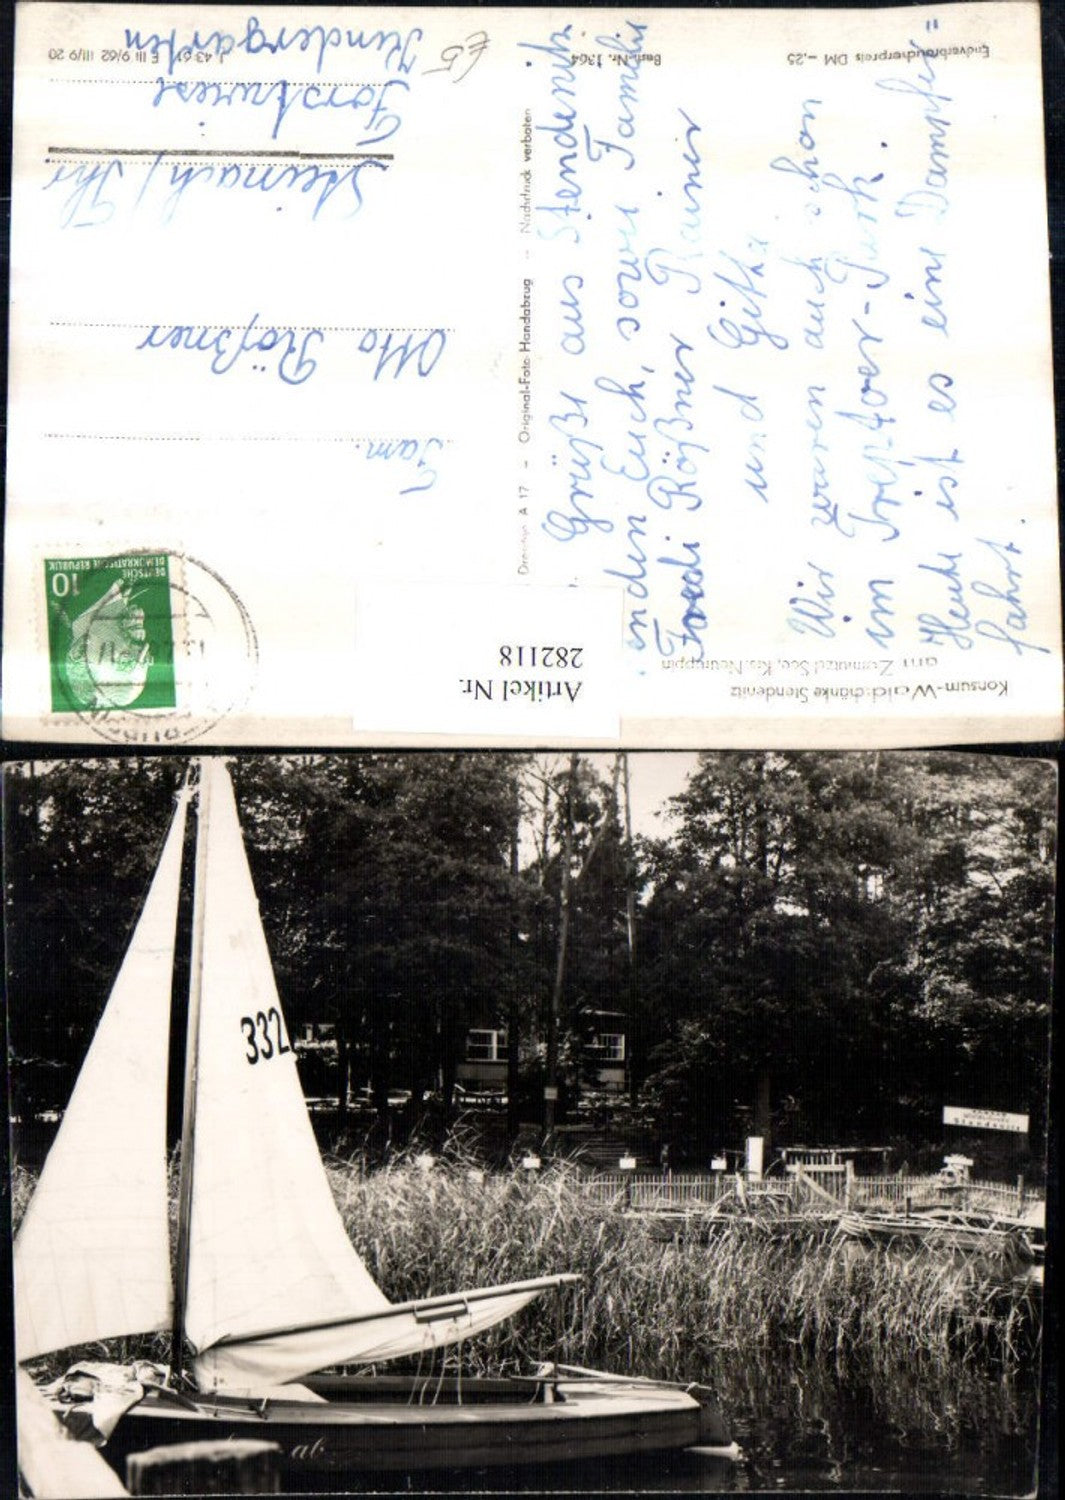 Konsum-Waldschänke Stendenitz
am Zermützel See, Krs. Neuruppin
Grüße aus Stendenitz
senden Euch, sowie Familie
Fredi Rößner Rainer
und Gitta
Wir waren auch schon
im Treptower-Park.
Heute ist es eine „Dampfer"
fahrt.
A 17 – Original-Foto-Handabzug – Nachdruck verboten
Best.-Nr. 1364
Endverbraucherpreis DM –,25
DEUTSCHE
DEMOKRATISCHE REPUBLIK
10
Fam.
Otto Rößner
Steinach/Thr
Forstwiese
Kindergarten
J 43 61 E III 9/62 III/9 20
£5
Artikel Nr.
282118
332
ab